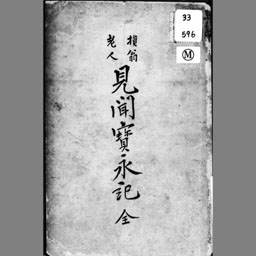 損翁
老人
見聞寶永記 全
33
596
M